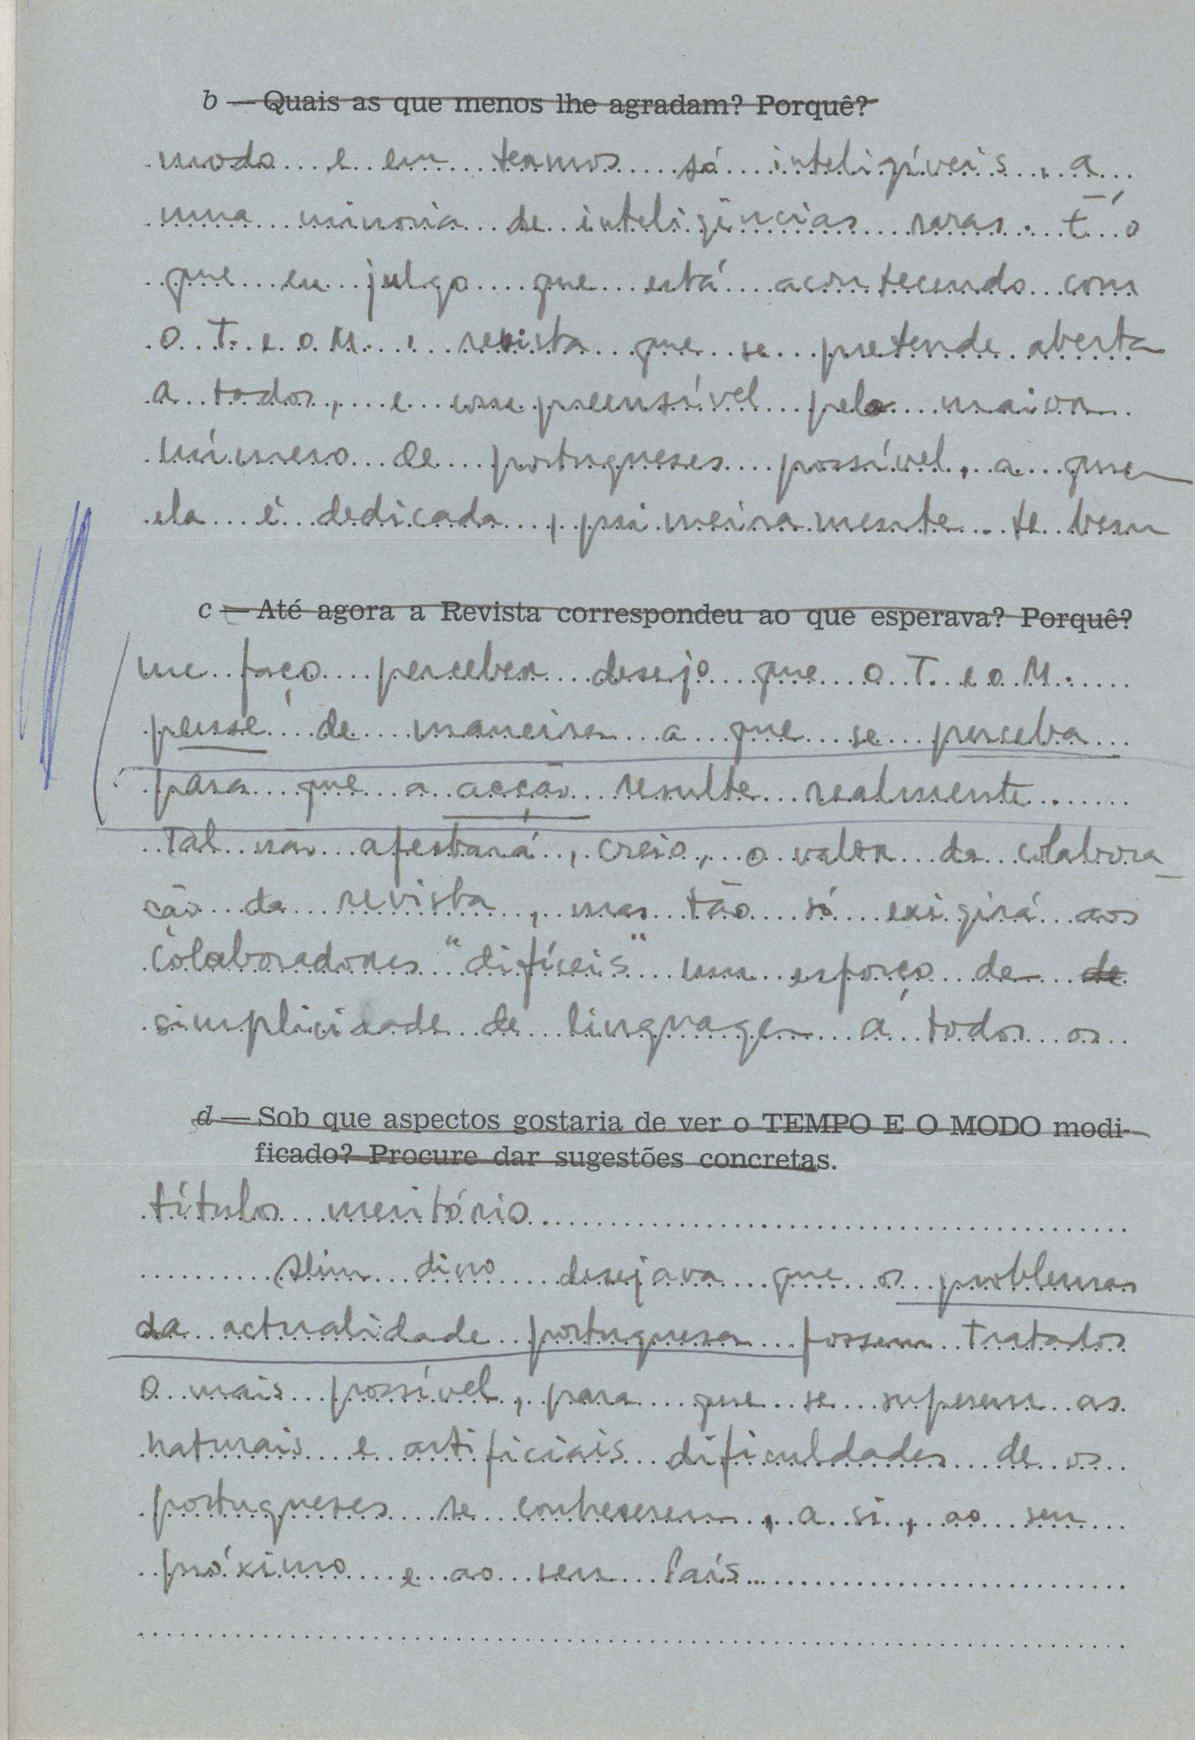 b — Quais as que menos lhe agradam? Porquê?
modo e em termos só inteligíveis, a
uma minoria de inteligências raras. É o
que eu julgo que está acontecendo com
o T. e o M. revista que se pretende aberta
a todos, e compreensível pelo maior
número de portugueses possível, a quem
ela é dedicada, primeiramente. Se bem
c — Até agora a Revista correspondeu ao que esperava? Porquê?
me faço perceber desejo que o T. e o M.
pense de maneira a que se perceba
para que a acção resulte realmente.
Tal não afectará, creio, o valor da colabora_
ção da revista, mas tão só exigirá aos
colaboradores "difíceis" um esforço de de
simplicidade de linguagem a todos os
d — Sob que aspectos gostaria de ver o TEMPO E O MODO modi-
ficado? Procure dar sugestões concretas.
títulos meritório.
Além disso desejava que os problemas
da actualidade portuguesa fossem tratados
o mais possível, para que se superem as
naturais e artificiais dificuldades de os
portugueses se conhecerem, a si, ao seu
próximo e ao seu País.